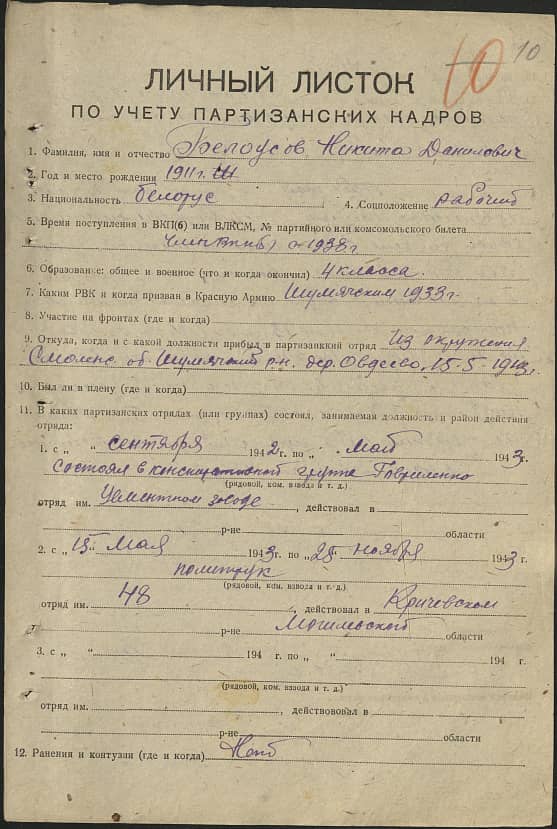 10 10
ЛИЧНЫЙ ЛИСТОК
ПО УЧЕТУ ПАРТИЗАНСКИХ КАДРОВ
1. Фамилия, имя и отчество Белоусов Никита Данилович
2. Год и место рождения 1911 г.
3. Национальность белорус 4. Соцположение рабочий
5. Время поступления в ВКП(б) или ВЛКСМ, № партийного или комсомольского билета
член ВКП(б) с 1938 г
6. Образование: общее и военное (что и когда окончил) 4 класса.
7. Каким РВК и когда призван в Красную Армию Шумячским 1933 г.
8. Участие на фронтах (где и когда)
9. Откуда, когда и с какой должности прибыл в партизанский отряд Из окружения
Смоленс. об. Шумячский р-н. дер. Овдеево, 15-5-
10. Был ли в плену (где и когда)
11. В каких партизанских отрядах (или группах) состоял, занимаемая должность и район действия
отряда:
1. с „ “ сентября 1942 г. по „ “ май 1943 г.
Состоял в группе Гавриленко
(рядовой, ком. взвода и т. д.)
отряд им. Цементном заводе, действовал в
р-не области
2. с „15“ мая 1943 г. по „25“ ноября 1943 г.
политрук
(рядовой, ком. взвода и т. д.)
отряд им. 48, действовал в Кричевском
р-не Могилевской области
3. с „ “ 194 г. по „ “ 194 г.
(рядовой, ком. взвода и т. д.)
отряд им. , действововал в
р-не области
12. Ранения и контузии (где и когда)